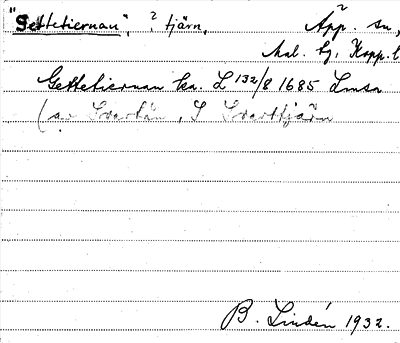 "Gettetiernan", ? tjärn, App. sn,
Mal. tg, Kopp. l
Gettetiernan ka. L 132/8 1685 Lmsa
(av Svartån, S Svarttjärn
B. Lindén 1932.